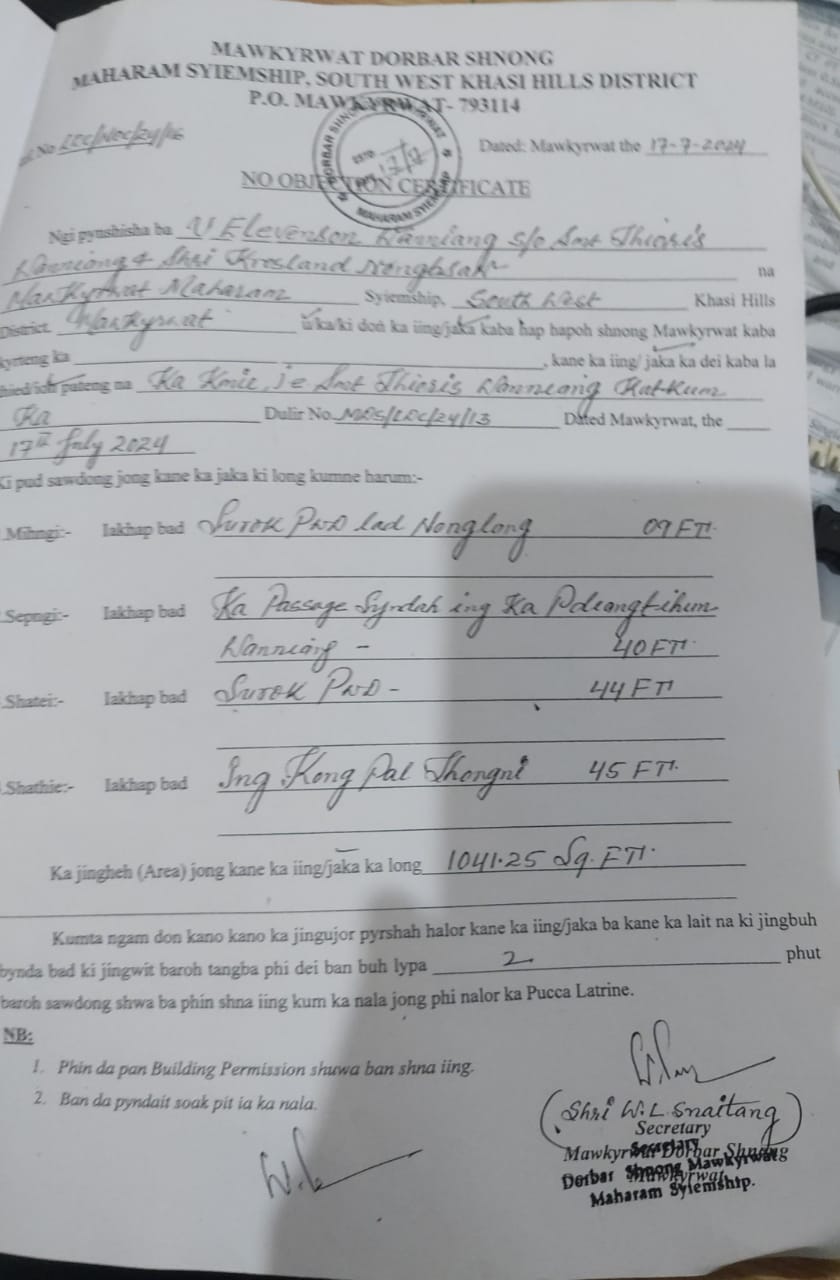 MAWKYRWAT DORBAR SHNONG
MAHARAM SYIEMSHIP, SOUTH WEST KHASI HILLS DISTRICT
P.O. MAWKYRWAT- 793114
No LDC/NOC/24/16 Dated: Mawkyrwat the 17-7-2024
NO OBJECTION CERTIFICATE
Ngi pynshisha ba U Elevenson Wanniang s/o Smt Thioris
Wanniang & Shri Kresland Nongbsak na
Mawkyrwat Maharam Syiemship, South West Khasi Hills
District, Mawkyrwat u/ka/ki don ka iing/jaka kaba hap hapoh shnong Mawkyrwat kaba
kyrteng ka , kane ka iing/ jaka ka dei kaba la
pateng na Ka Kmie, i.e Smt Thioris Wanniang Katkum
Ka Dulir No. MDS/LDC/24/13 Dated Mawkyrwat, the
17th July 2024
Ki pud sawdong jong kane ka jaka ki long kumne harum:-
Mihngi:- Iakhap bad Surok PWD lad Nonglong 09 FT.
Sepngi:- Iakhap bad Ka Passage Syndah ing Ka
Wanniang - 40 FT.
Shatei:- Iakhap bad Surok PWD - 44 FT
Shathie:- Iakhap bad Ing Kong Pal Thongni 45 FT.
Ka jingheh (Area) jong kane ka iing/jaka ka long 1041.25 Sq. FT.
Kumta ngam don kano kano ka jingujor pyrshah halor kane ka iing/jaka ba kane ka lait na ki jingbuh
bynda bad ki jingwit baroh tangba phi dei ban buh lypa 2 phut
baroh sawdong shwa ba phin shna iing kum ka nala jong phi nalor ka Pucca Latrine.
NB:
1. Phin da pan Building Permission shuwa ban shna iing.
2. Ban da pyndait soak pit ia ka nala.
(Shri W.L. Snaitang)
Secretary
Mawkyrwat Dorbar Shnong
Mawkyrwat
Secretary
Dorbar Shnong Mawkyrwat
Maharam Syiemship.